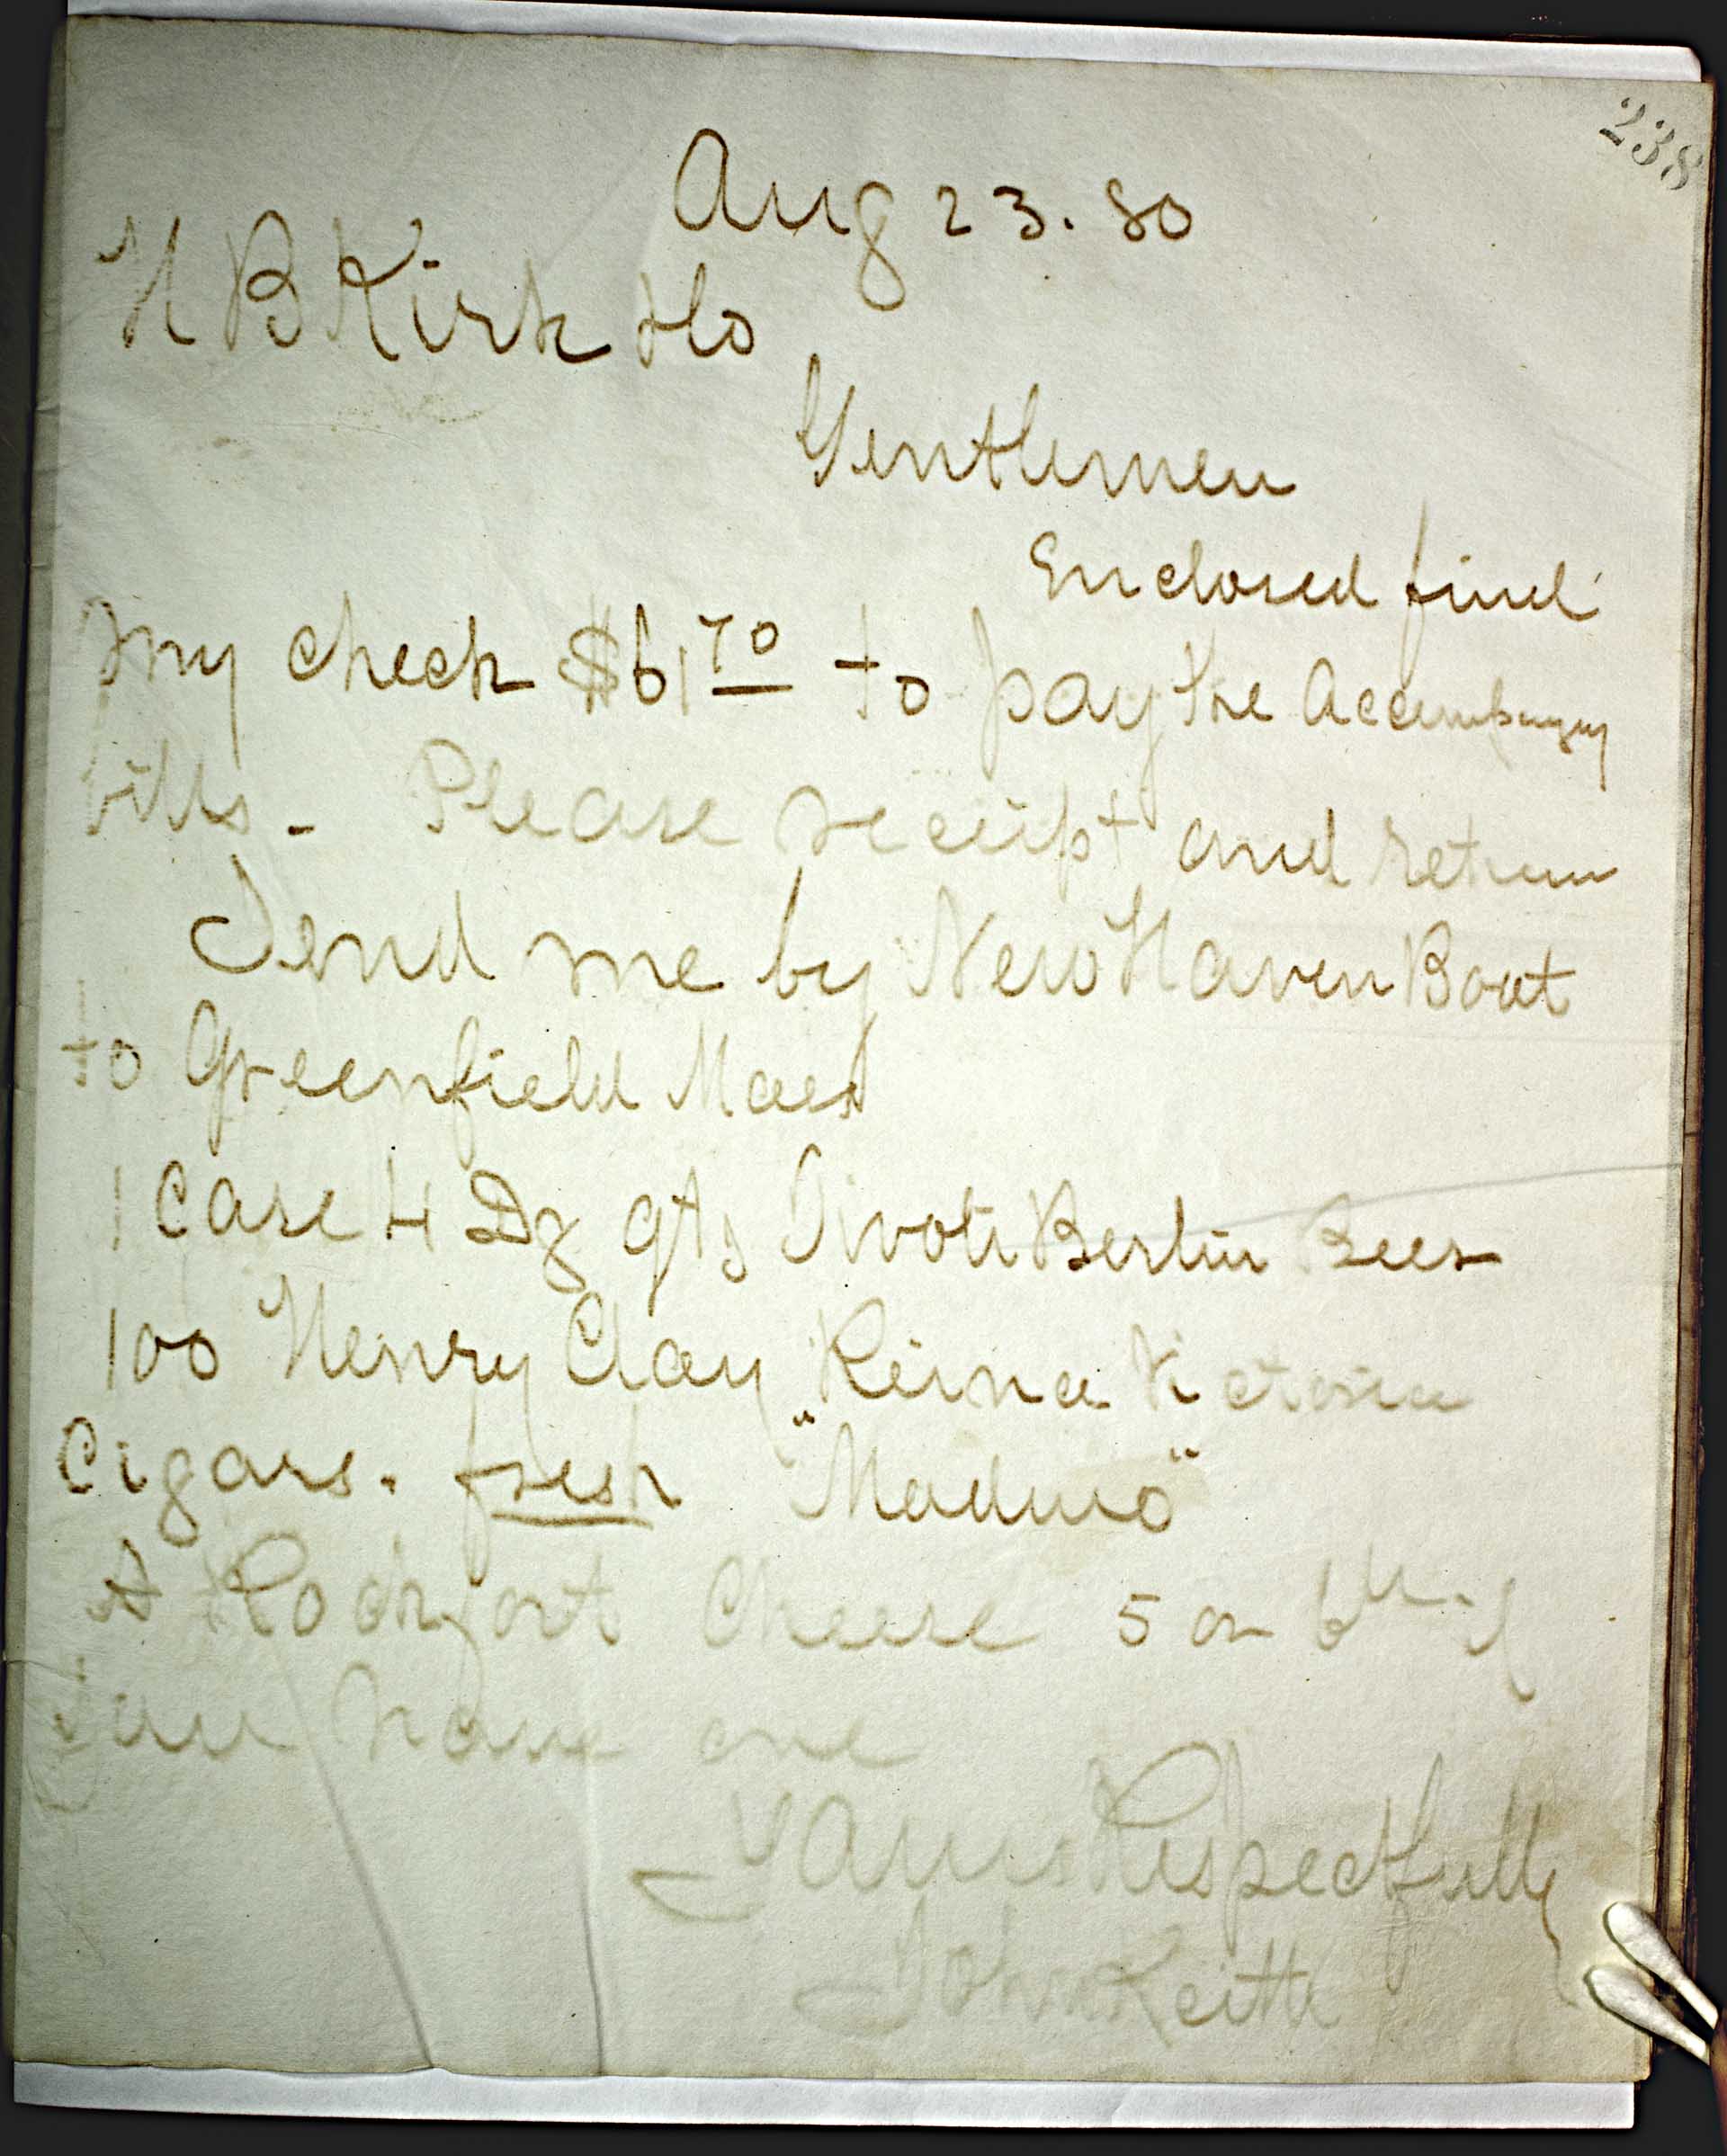 238
Aug 23. 80
H B Kirk & Co
Gentlemen
Enclosed find
my check $61 70 to pay the Accompanying
bills - Please receipt and return
Send me by New Haven Boat
to Greenfield Mass
1 Case 4 Dz qts Tivoli Berlin Beer
100 Henry Clay "Reina Victoria
Cigars. fresh "Maduro"
A Rochfort Cheese 5 or 6 lb. if
you have one
Yours Respectfully
John Keith